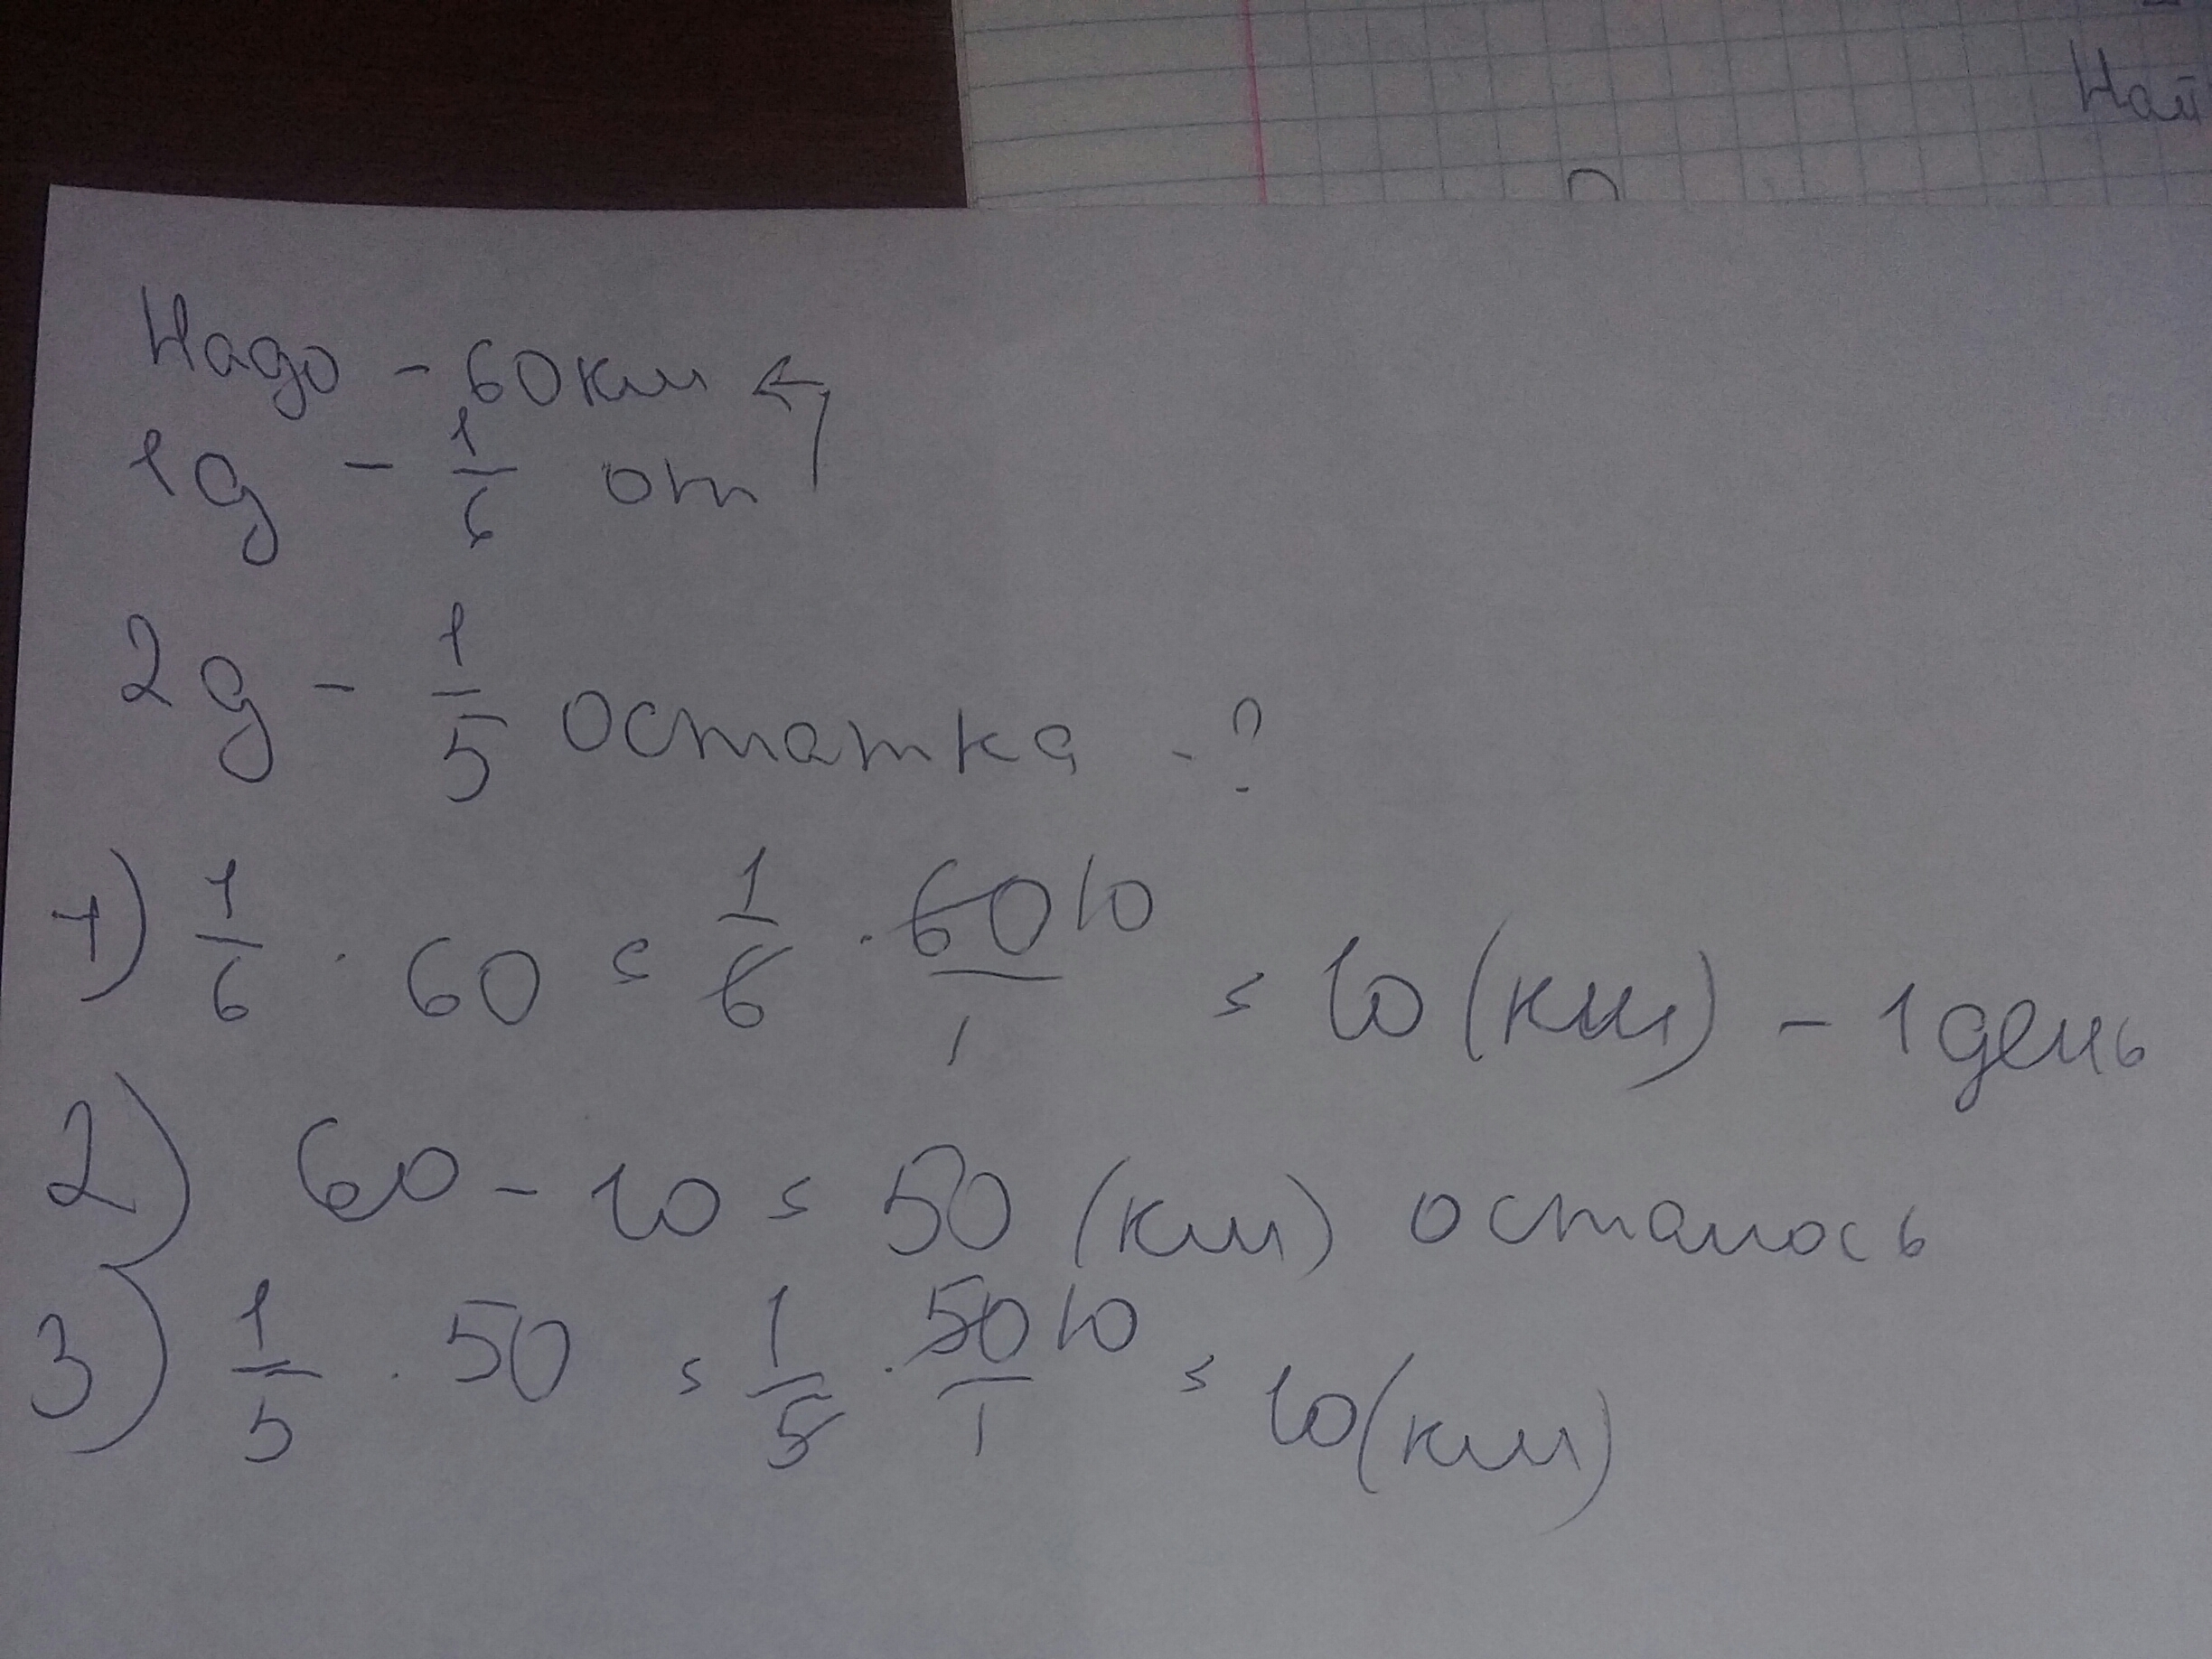 Най
Надо - 60 км
1д - 1/6 от
2д - 1/5 остатка - ?
1) 1/6 · 60 = 1/6 · 60/1 10 = 10 (км) - 1 день
2) 60 - 10 = 50 (км) осталось
3) 1/5 · 50 = 1/5 · 50/1 10 = 10 (км)